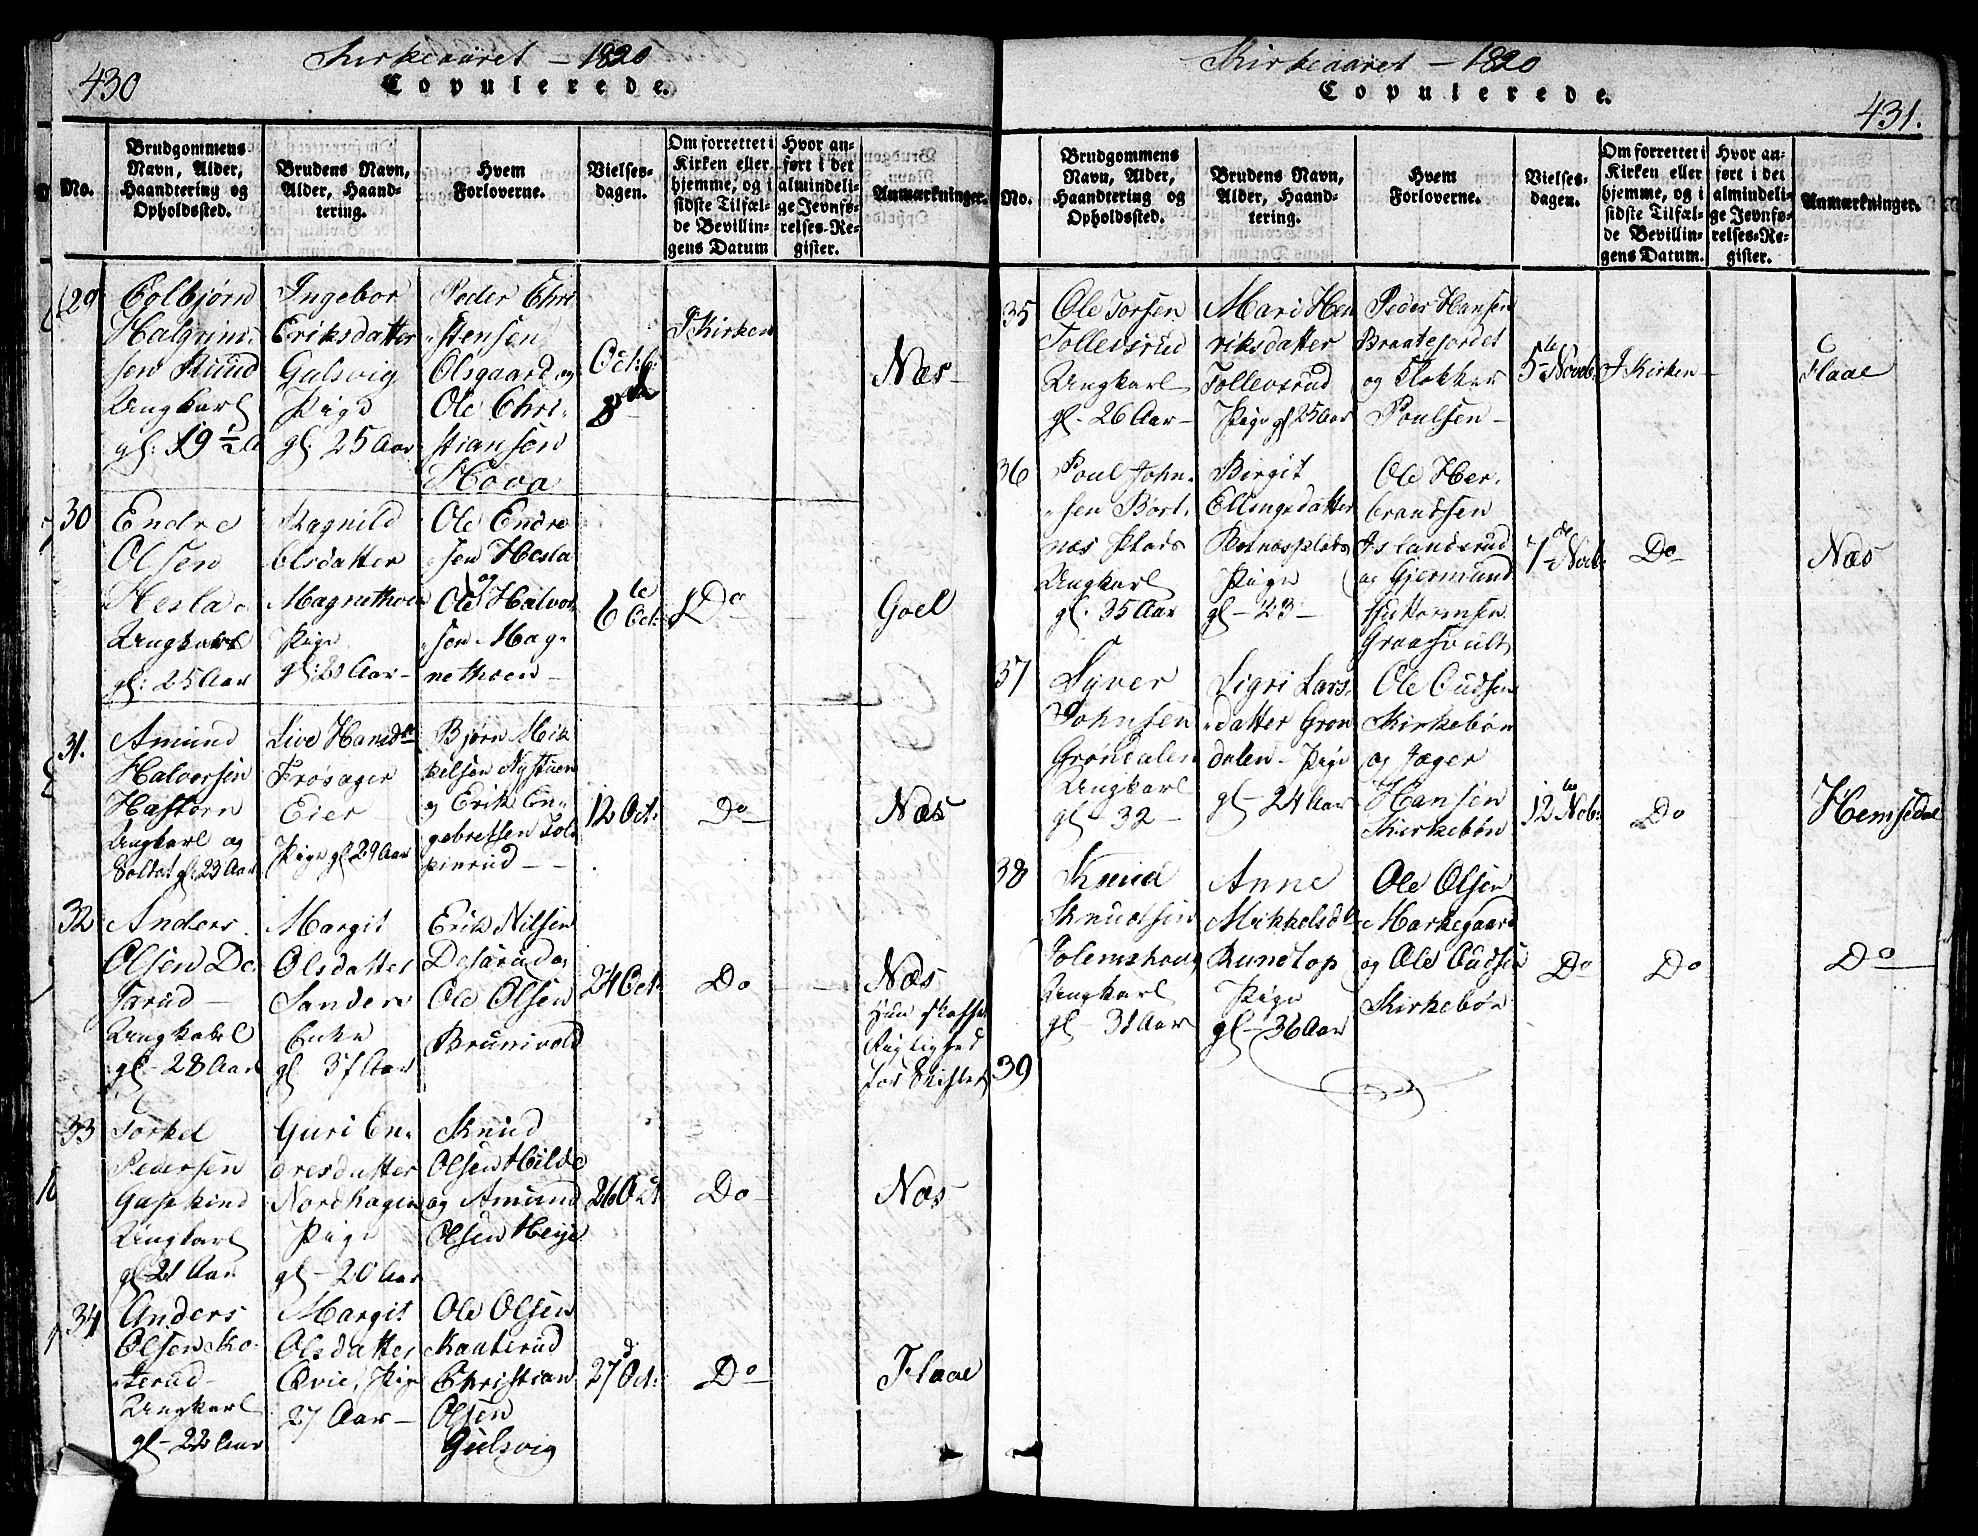 430
Kirkeaaret – 1820
Copulerede.
No.
Brudgommens
Navn, Alder,
Haandtering og
Opholdssted.
Brudens Navn,
Alder, Haand-
tering.
Hvem
Forloverne.
Vielses-
dagen.
Om forrettet i
Kirken eller
hjemme, og i
sidste Tilfæl-
de Bevillin-
gens Datum
Hvor an-
ført i det
almindeli-
ge Jevnfø-
relses-Re-
gister.
Anmærkninger.
29
Colbjørn
Halgrim-
sen Ruud
Ungkarl
gl: 19 ½ A
Ingebor
Eriksdatter
Gulsvig
Pige
gl: 25 Aar
Peder Chri
stensen
Olsgaard og
Ole Chri-
stiansen
Hova
Octb:
8de
I Kirken
Næs
30
Endre
Olsen
Hesla
Ungkarl
gl: 25 Aar
Ragnild
Olsdatter
Magnethoen
Pige
Ole Endre
sen Hesla
og
Ole Halvor
sen Mag-
nethoen
6te Oct:
Do
Goel
31.
Amund
Halvorsen
Haftorn
Ungkarl og
Soldat gl: 23 Aar
Live Hansd
Frøsager
Eier
Pige gl 29 Aar
Bjørn Mik
kelsen Nystuen
og Erik En-
gebretsen
12 Oct:
Do
Næs
32
Anders
Olsen De
sarud
Ungkarl
gl – 28 Aar
Margit
Olsdatter
Sandere
Enke
gl 37 Aar
Erik Nilsen
Desarud og
Ole Olsen
Brunivold
24 Oct:
Do
Næs
Hun
for Skiftet
33
Torkel
Pedersen
Gasekind
Ungkarl
gl 21 Aar
Guri En-
dresdatter
Nordhagen
Pige
gl – 20 Aar
Knud
Olsen Hilde
og Amund
Olsen Heije
26 Oct
Do
Næs
34
Anders
Olsen Ko-
terud
Ungkarl
gl – 22 Aar
Margit
Olsdatter
Qvie, Pige
27 Aar –
Ole Olsen
Kaaterud
Christian
Olsen
Gulsvig
27 Oct:
Do
Flaae
Kirkeaaret – 1820
Copulerede.
431.
No.
Brudgommens
Navn, Alder,
Haandtering og
Opholdssted.
Brudens Navn,
Alder, Haand-
tering.
Hvem
Forloverne.
Vielses-
dagen.
Om forrettet i
Kirken eller
hjemme, og i
sidste Tilfæl-
de Bevillin-
gens Datum.
Hvor an-
ført i det
almindeli-
ge Jevnfø-
relses-Re-
gister.
Anmærkninger.
35
Ole Torsen
Tollevsrud
Ungkarl
gl – 26 Aar –
Mari Hen
riksdatter
Tollevsrud
Pige gl 25 Aar
Peder Hansen
Braatejordet
og Klokker
Poulsen –
5te Novb:
I Kirken
Flaae
36
Poul John-
sen Bort-
næs Plads
Ungkarl
gl. 35 Aar
Birgit
Ellingsdatter
Pige
gl – 23 –
Ole Her-
brandsen
Islandsrud
og Gjermund
Guttormsen
7de Novb:
Do
Næs
37
Syver
Johnsen
Grøndalen
Ungkarl
gl – 32 –
Sigri Lars-
datter Grøn
dalen – Pige
gl – 24 Aar
Ole Gudsen
Kirkebøn
og Jæger
Hansen
Kirkebøn
12te Nob:
Do
Hemsedal
38
Knud
Knudsen
Ungkarl
gl – 31 Aar
Anne
Mikkelsd
Rundtop
Pige
gl – 36 Aar
Ole Olsen
Markegaard
og Ole Gudsen
Kirkebøn
Do
Do
Do
39